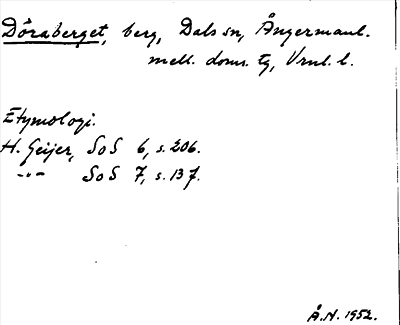 Döraberget, berg, Dals sn, Ångermanl.
mell. doms. tg, Vrnl. l.
Etymologi.
H. Geijer, SoS 6, s. 206.
-"- SoS 7, s. 137.
Å.N. 1952.